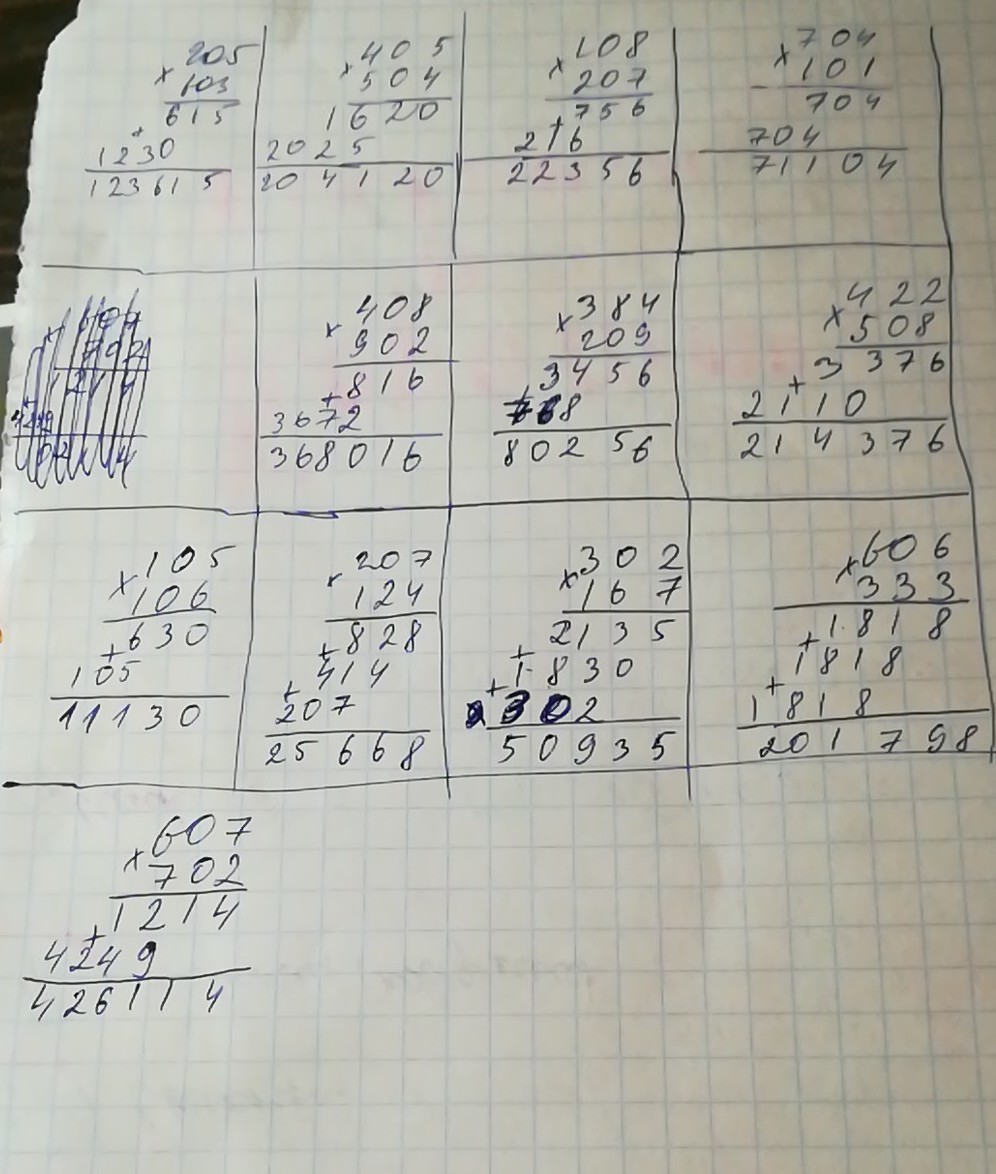 205
× 103
615
+
1230
123615
405
× 504
1620
2025
204120
108
× 207
756
+
216
22356
704
× 101
704
704
71104
408
× 902
816
+
3672
368016
384
× 209
3456
+
768
80256
422
× 508
3376
+
2110
214376
105
× 106
630
+
105
11130
207
× 124
828
+
414
+
207
25668
302
× 167
2135
+
1830
+
302
50935
606
× 333
1818
+
1818
+
1818
201798
607
× 702
1214
+
4249
426114